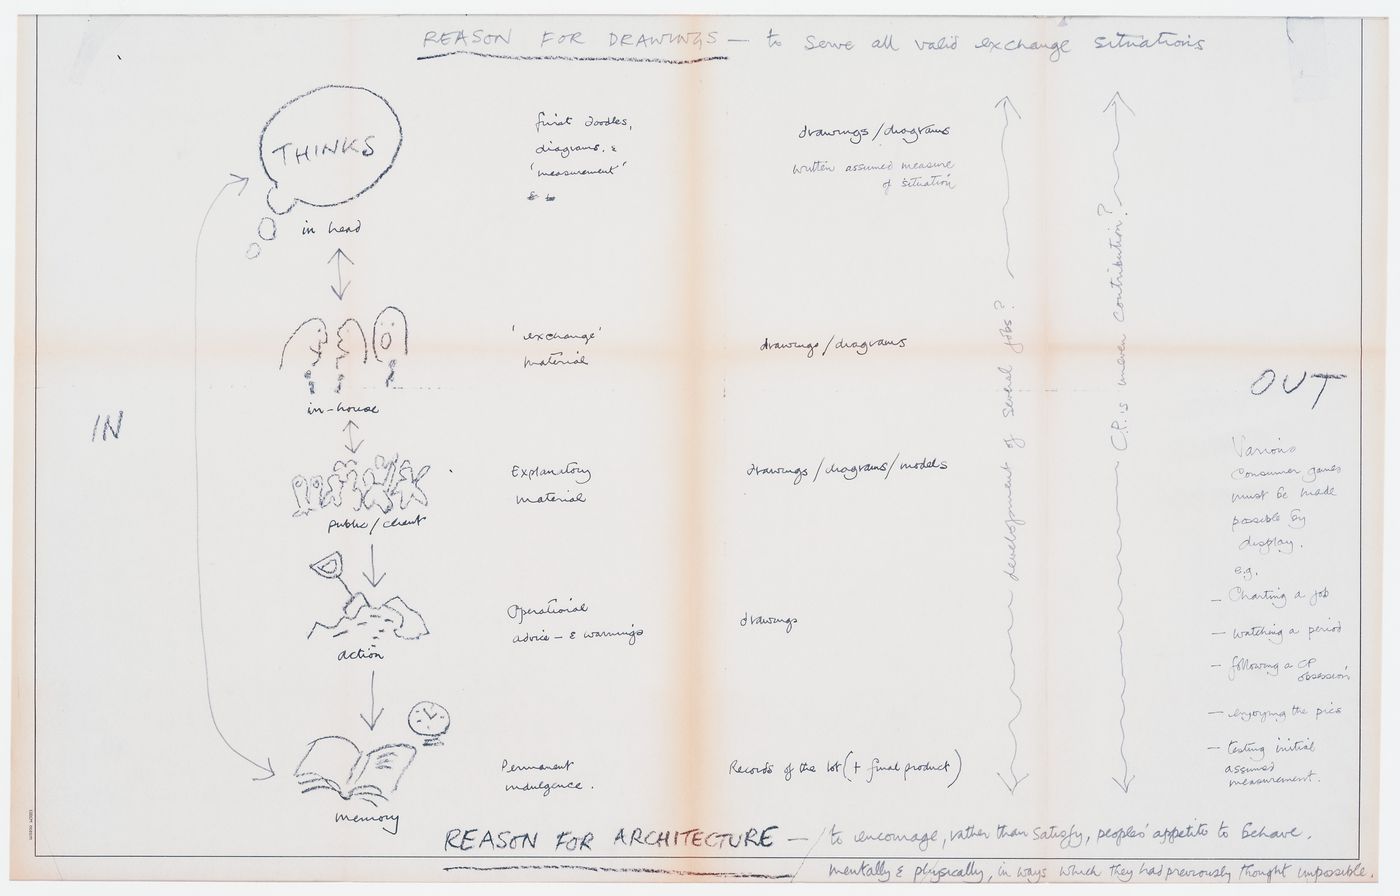 REASON FOR DRAWINGS — to serve all valid exchange situations
THINKS
in head
first doodles,
diagrams, &
'measurement'
drawings/diagrams
written assumed measure
of situation
in-house
'exchange'
material
drawings/diagrams
public/client
Explanatory
material
drawings/diagrams/models
action
Operational
advice — & warnings
drawings
memory
Permanent
indulgence.
Records of the lot (+ final product)
development of several jobs?
C.P. is uneven contribution?
IN
OUT
Various
consumer games
must be made
possible by
display.
e.g.
— Charting a job
— watching a period
— following a CP
obsession
— enjoying the pics
— testing initial
assumed
measurement.
REASON FOR ARCHITECTURE — / to encourage, rather than satisfy, peoples' appetite to behave.
mentally & physically, in ways which they had previously thought impossible.